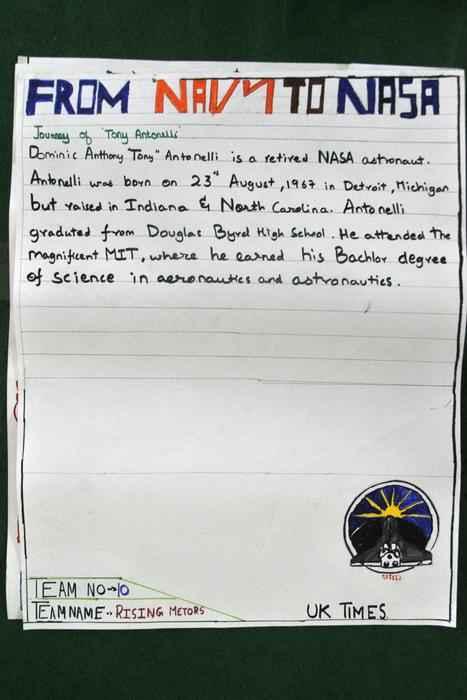 FROM NAVY TO NASA
Journey of 'Tony Antonelli'
Dominic Anthony "Tony" Antonelli is a retired NASA astronaut.
Antonelli was born on 23rd August, 1967 in Detroit, Michigan
but raised in Indiana & North Carolina. Antonelli
graduted from Douglas Byrd High School. He attended the
magnificent MIT, where he earned his Bachlor degree
of science in aeronautics and astronautics.
TEAM NO→10
TEAM NAME.. RISING METORS
UK TIMES